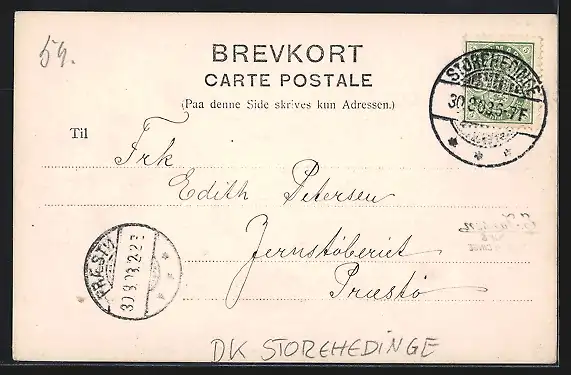 54.
BREVKORT
CARTE POSTALE
(Paa denne Side skrives kun Adressen.)
STOREHEDINGE
30.8.03.5-7F
Til
Frk
Edith Petersen
Jernstöberiet
Præstö
PRÆSTØ
30.8.03.2-3E
DK STOREHEDINGE